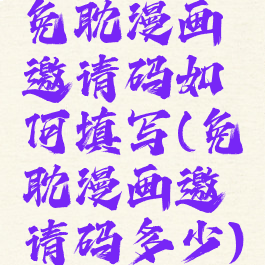 免耽漫画
邀请码如
何填写(免
耽漫画邀
请码多少)